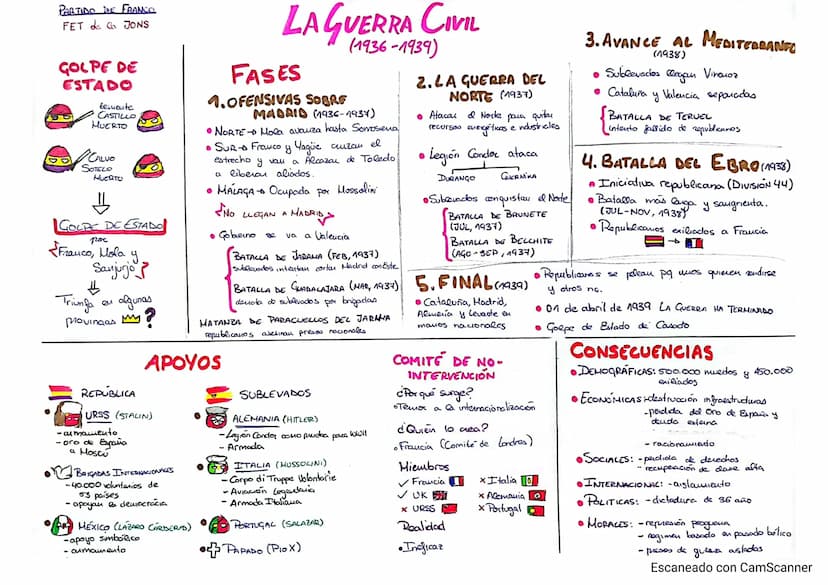 PARTIDO DE FRANCO
FET de las JONS
LA GUERRA CIVIL
(1936-1939)
GOLPE DE
ESTADO
teniente
CASTILLO
MUERTO
CALVO
SOTELO
MUERTO
GOLPE DE ESTADO
por
Franco, Mola y
Sanjurjo
Triunfa en algunas
provincias ?
FASES
1. OFENSIVAS SOBRE
MADRID (1936-1937)
• NORTE → Mola avanza hasta Somosierra
• SUR → Franco y Yagüe cruzan el
estrecho y van a Alcázar de Toledo
a liberar aliados.
• MÁLAGA → Ocupada por Mussolini
¡NO LLEGAN A MADRID!
• Gobierno se va a Valencia
BATALLA DE JARAMA (FEB, 1937)
sublevados intentan cortar Madrid con Este
BATALLA DE GUADALAJARA (MAR, 1937)
derrota de sublevados por brigadas
MATANZA DE PARACUELLOS DEL JARAMA
republicanos asesinan presos nacionales
2. LA GUERRA DEL
NORTE (1937)
• Atacar el Norte para quitar
recursos energéticos e industriales
• Legión Condor ataca
DURANGO GUERNIKA
• Sublevados conquistan el Norte
BATALLA DE BRUNETE
(JUL, 1937)
BATALLA DE BELCHITE
(AGO-SEP, 1937)
3. AVANCE AL MEDITERRANEO
(1938)
• Sublevados llegan Vinaroz
• Cataluña y Valencia separadas
BATALLA DE TERUEL
intento fallido de republicanos
4. BATALLA DEL EBRO (1938)
• Iniciativa republicana (DIVISIÓN 44)
• Batalla más larga y sangrienta.
(JUL-NOV, 1938)
• Republicanos exiliados a Francia
5. FINAL (1939)
• Cataluña, Madrid,
Almería y Levante en
manos nacionales
• Republicanos se pelean pq unos quieren rendirse
y otros no.
• 01 de abril de 1939 LA GUERRA HA TERMINADO
• Golpe de Estado de Casado
APOYOS
REPÚBLICA
• URSS (STALIN)
- armamento
- oro de España
a Moscú
• BRIGADAS INTERNACIONALES
- 40.000 voluntarios de
53 países
- apoyan la democracia
• MÉXICO (LÁZARO CÁRDENAS)
- apoyo simbólico
- armamento
SUBLEVADOS
• ALEMANIA (HITLER)
- Legión Condor como prueba para WWII
- Armada
• ITALIA (MUSSOLINI)
- Corpo di Truppe Volontarie
- Aviación Legionaria
- Armada Italiana
• PORTUGAL (SALAZAR)
• PAPADO (PIO X)
COMITÉ DE NO-
INTERVENCIÓN
¿Por qué surge?
• Temor a la internacionalización
¿Quién lo crea?
• Francia (Comité de Londres)
Miembros
✓ Francia × Italia
✓ UK × Alemania
× URSS × Portugal
Realidad
• Ineficaz
CONSECUENCIAS
• DEMOGRÁFICAS: 500.000 muertos y 450.000
exiliados
• ECONÓMICAS: - destrucción infraestructuras
- pérdida del Oro de España y
deuda externa
- racionamiento
• SOCIALES: - pérdida de derechos
- recuperación de clase alta
• INTERNACIONAL: - aislamiento
• POLÍTICAS: - dictadura de 36 año
• MORALES: - represión pequeña
- régimen basado en pasado bélico
- presos de guerra aislados
Escaneado con CamScanner